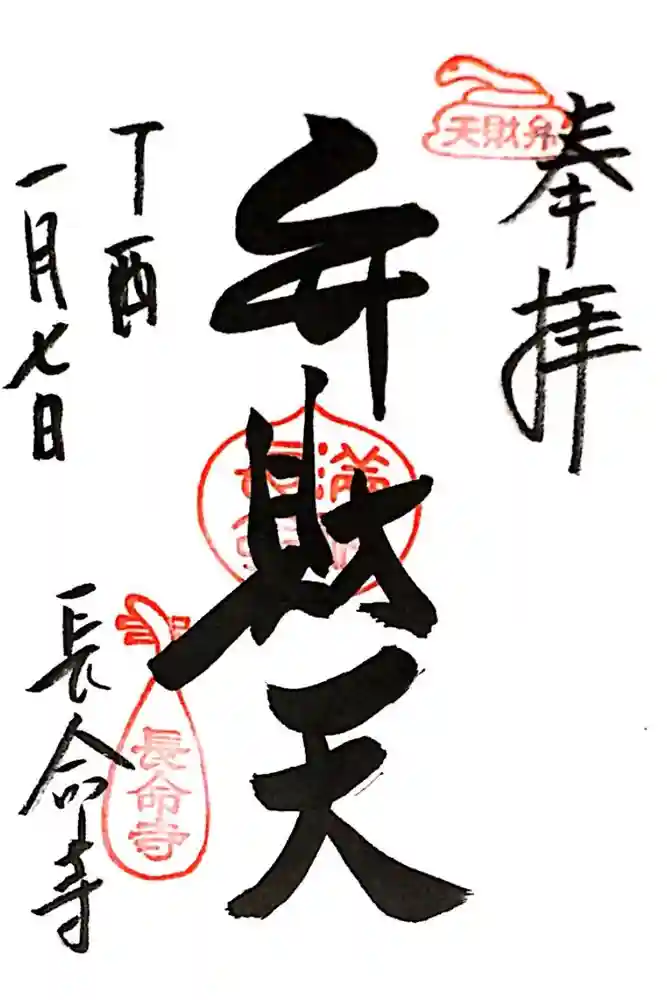 奉拝
天財弁
弁財天
満
丁酉
一月七日
長命寺
長命寺